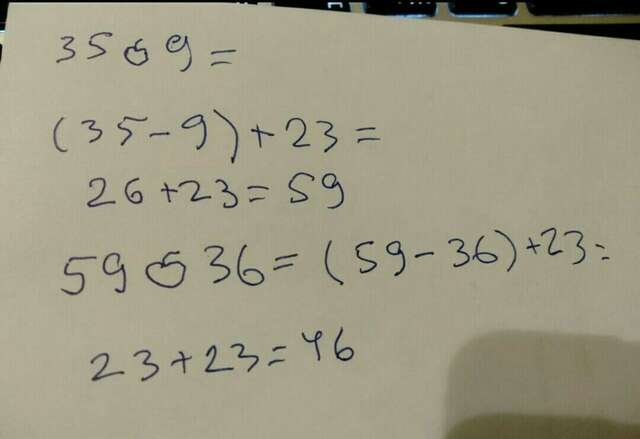 35 ○ 9 =
(35 - 9) + 23 =
26 + 23 = 59
59 ○ 36 = (59 - 36) + 23 =
23 + 23 = 46